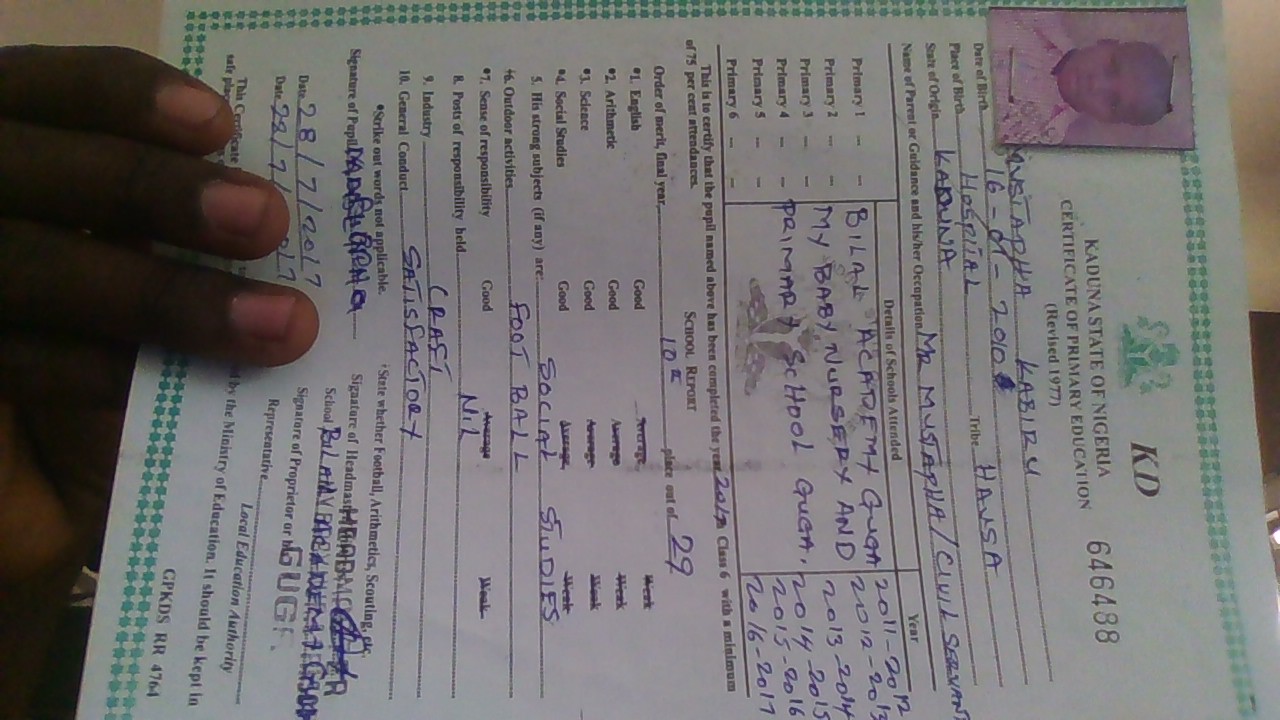 KD 646488
KADUNA STATE OF NIGERIA
CERTIFICATE OF PRIMARY EDUCATION
(Revised 1977)
MUSTAPHA KABIRU
Date of Birth 16-01-2010
Place of Birth HOSPITAL Tribe HAUSA
State of Origin KADUNA
Name of Parent or Guidance and his/her Occupation MR MUSTAPHA/CIVIL SERVANT
Details of Schools Attended Year
Primary 1 BILAL ACADEMY GUGA 2011-2012
2012-2013
Primary 2 MY BABY NURSERY AND 2013-2014
Primary 3 PRIMARY SCHOOL GUGA, 2014-2015
Primary 4 2015-2016
Primary 5 2016-2017
Primary 6
This is to certify that the pupil named above has been completed the year 2017 Class 6 with a minimum
of 75 per cent attendances.
SCHOOL REPORT
Order of merit, final year, 10th place out of 29
*1. English Good Average Weak
*2. Arithmetic Good Average Weak
*3. Science Good Average Weak
*4. Social Studies Good Average Weak
5. His strong subjects (if any) are: SOCIAL STUDIES
†6. Outdoor activities FOOT BALL
*7. Sense of responsibility Good Average Weak
8. Posts of responsibility held NIL
9. Industry CRAST
10. General Conduct SATISFACTORY
*Strike out words not applicable. †State whether Football, Arithmetics, Scouting,
Signature of Pupil
Signature of Headmaster
Date 28/7/2017 School
Date 28/7/ Signature of Proprietor or his
Representative
Local Education Authority
This Certificate by the Ministry of Education. It should be kept in
safe
GPKDS RR 4764